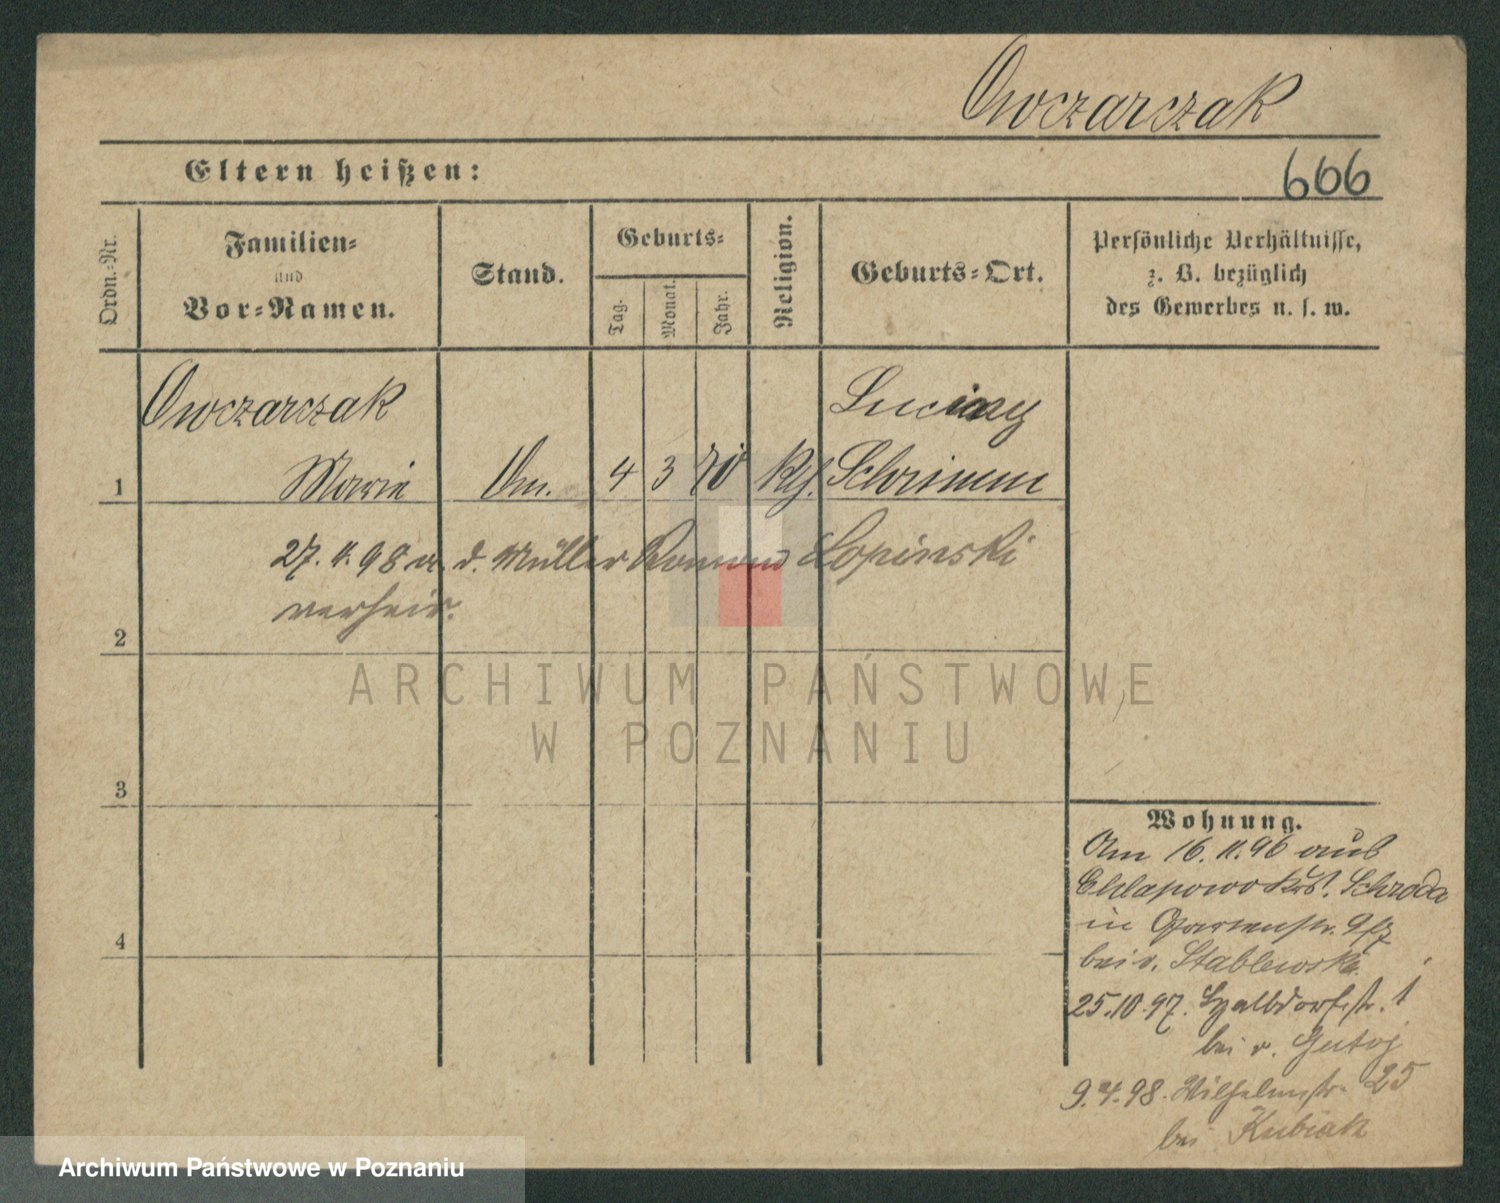 Owczarczak
Eltern heißen:
666
Ordn.-Nr.
Familien-
und
Vor-Namen.
Stand.
Geburts-
Tag.
Monat.
Jahr.
Religion.
Geburts-Ort.
Persönliche Verhältnisse,
z. B. bezüglich
des Gewerbes u. s. w.
Owczarczak
Luciny
1 Marie 4 3 70 Schrimm
27. 4. 98 d. Müller Roman Lopinski
verheir.
2
3
4
ARCHIWUM PAŃSTWOWE
W POZNANIU
Wohnung.
Am 16. 11. 96 aus
Chlapowo Krs. Schroda
in Gartenstr.
bei v. Stablewski
25.10.97. Halbdorfstr. 1
bei v.
9.4.98. Wilhelmstr. 25
bei Kubiak
Archiwum Państwowe w Poznaniu